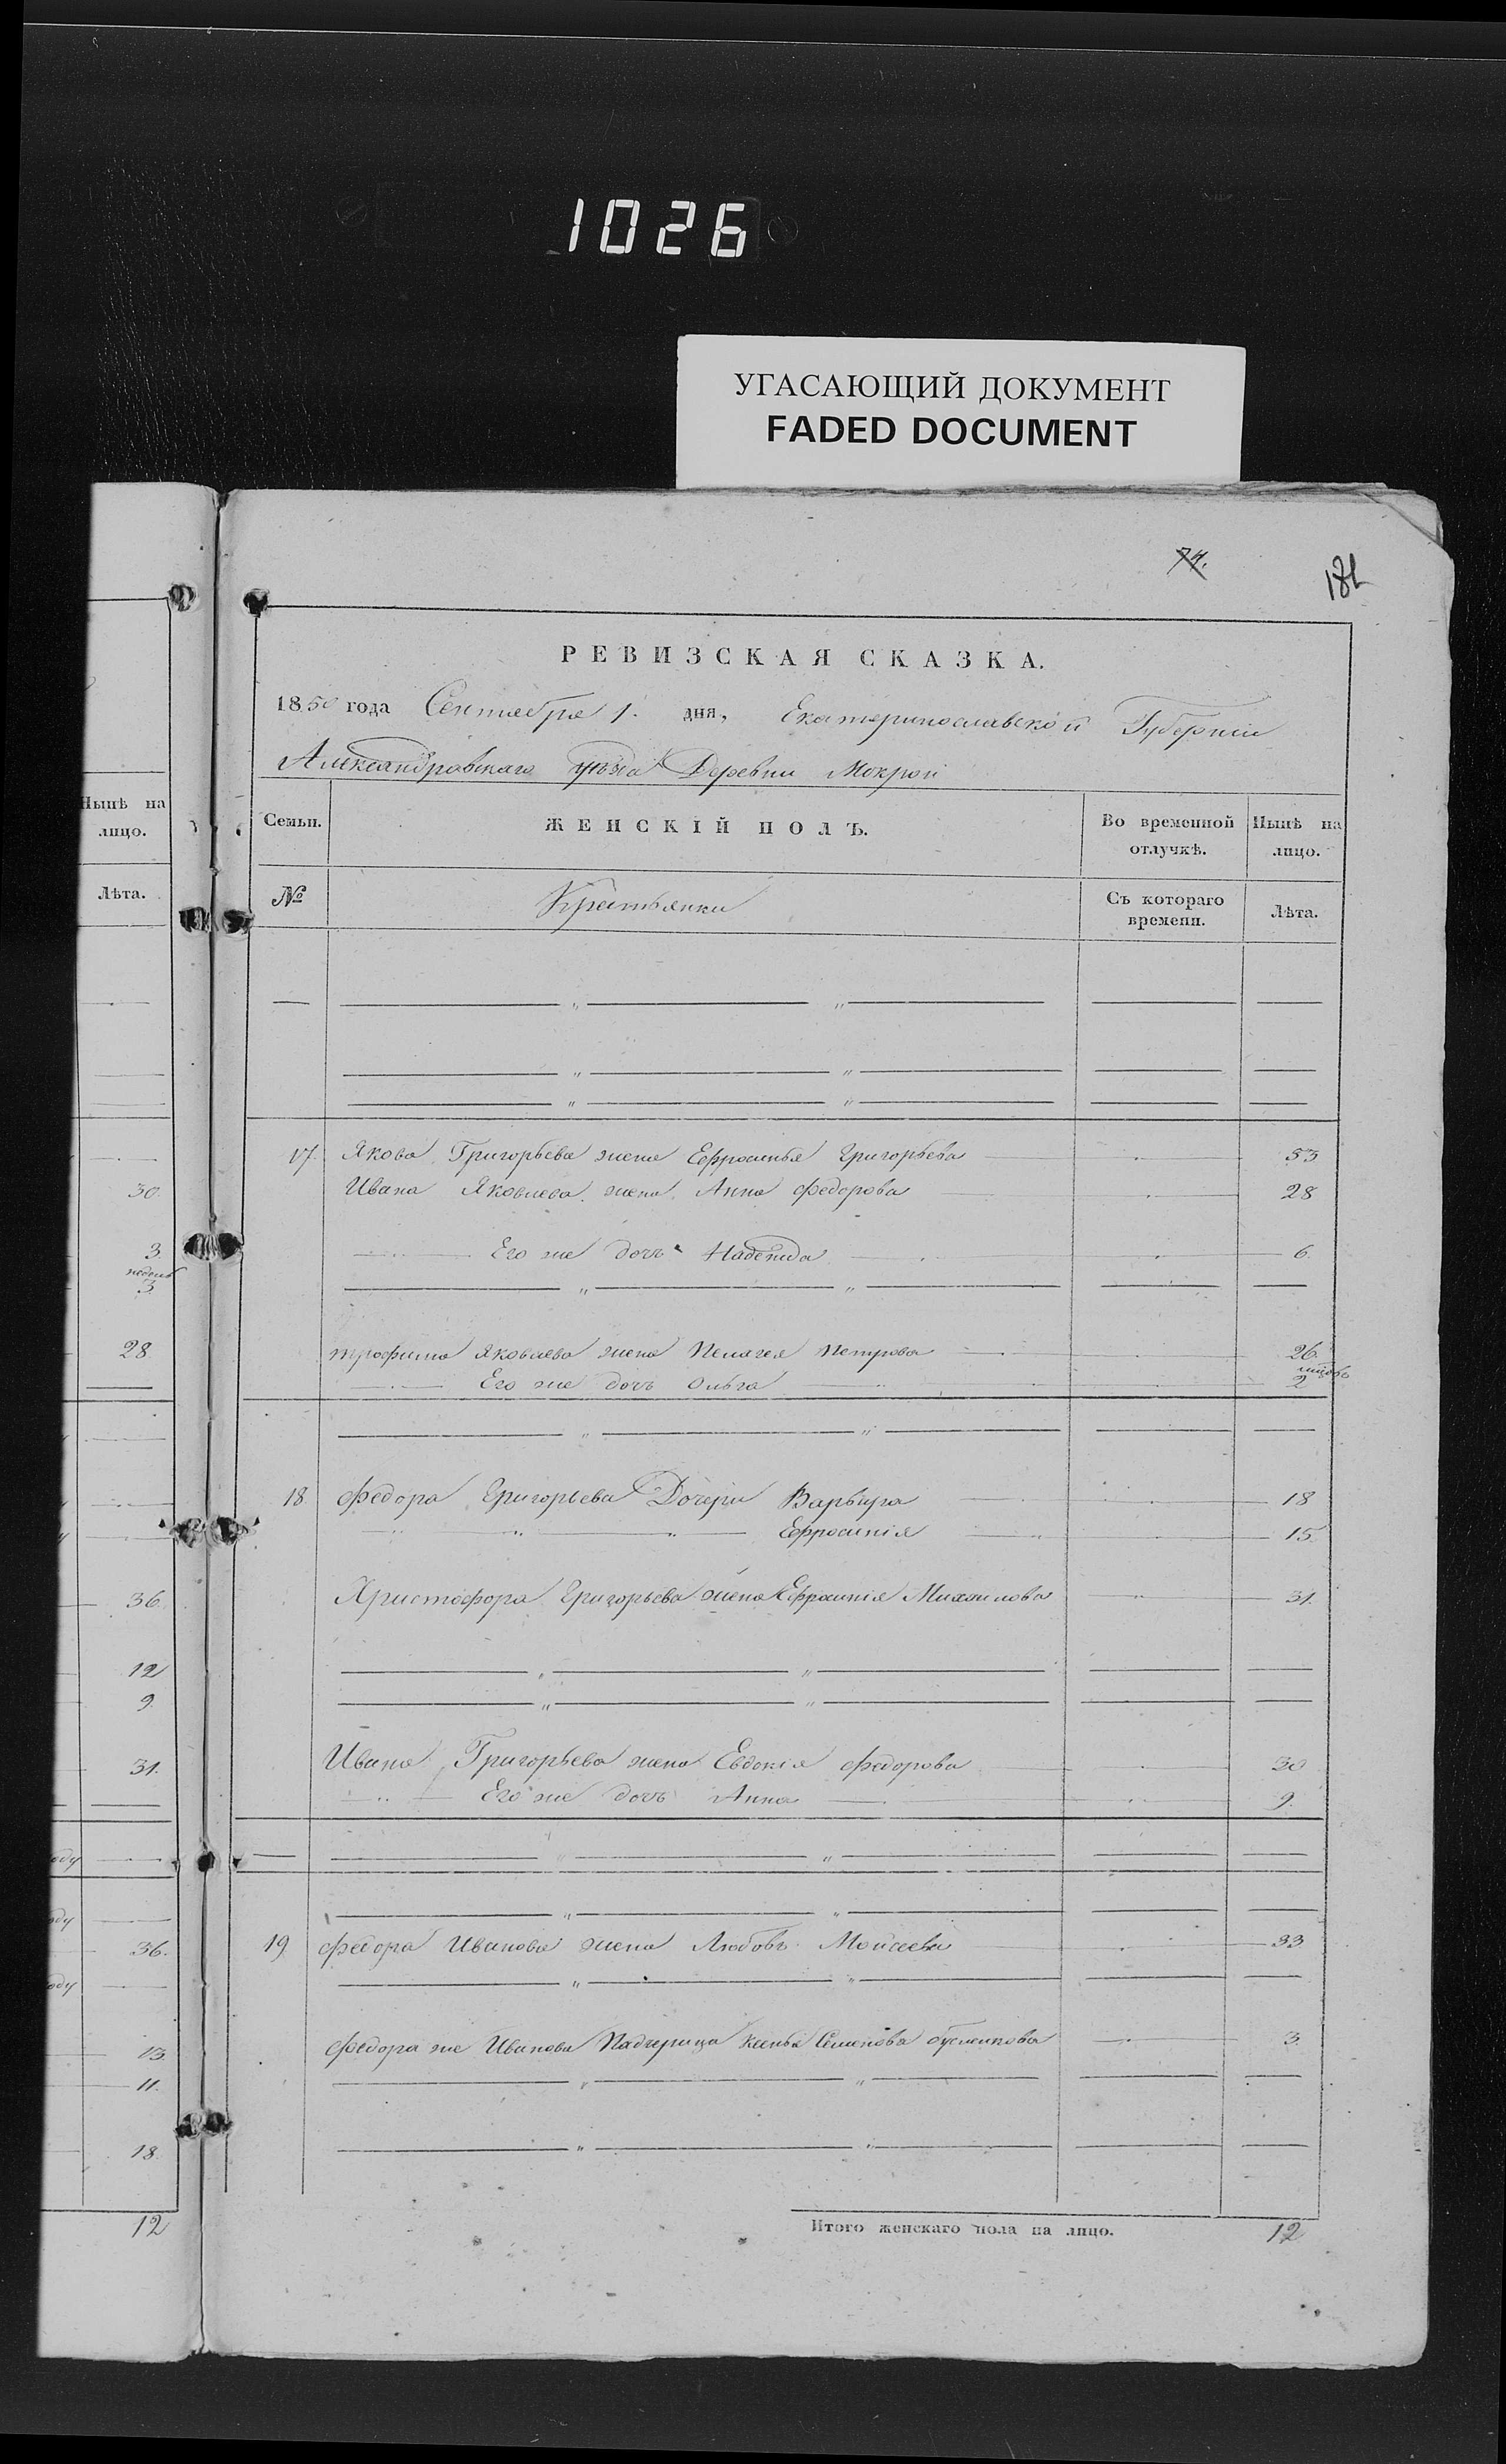 1026
УГАСАЮЩИЙ ДОКУМЕНТ
FADED DOCUMENT
74.
181
РЕВИЗСКАЯ СКАЗКА.
1850 года Сентября 1. дня, Екатеринославской Губерніи
Александровскаго уѣзда Деревни Мокрой
Нынѣ на лицо.
Лѣта.
30.
3
недѣль
3
28
36
12
9.
31.
оду
оду
36.
оду
13
11.
18.
12
Семьи. ЖЕНСКІЙ ПОЛЪ. Во временной отлучкѣ. Нынѣ на лицо.
№ Крестьянки Съ котораго времени. Лѣта.
17. Якова Григорьева жена Ефросинья Григорьева 53
Ивана Яковлева жена Анна Федорова 28
Его же дочь Надежда 6.
Трофима Яковлева жена Пелагея Петрова 26.
Его же дочь Ольга 2
18 Федора Григорьева Дочери Варвара 18
Ефросинія 15.
Христофора Григорьева жена Ефросинія Михайлова 31.
Ивана Григорьева жена Евдокія Федорова 30
Его же дочь Анна 9.
19 Федора Иванова жена Любовь Моисеева 33
Федора же Иванова Падчерица Ксенья Семенова 3.
Итого женскаго пола на лицо. 12